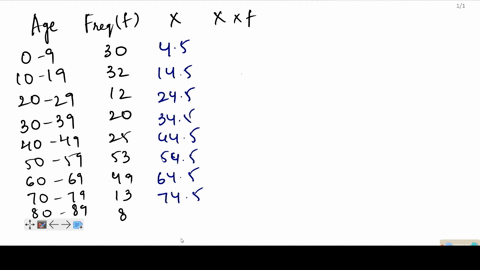 1/1
Age Freq(f) X X x f
0-9 30 4.5
10-19 32 14.5
20-29 12 24.5
30-39 20 34.5
40-49 25 44.5
50-59 53 54.5
60-69 49 64.5
70-79 13 74.5
80-89 8